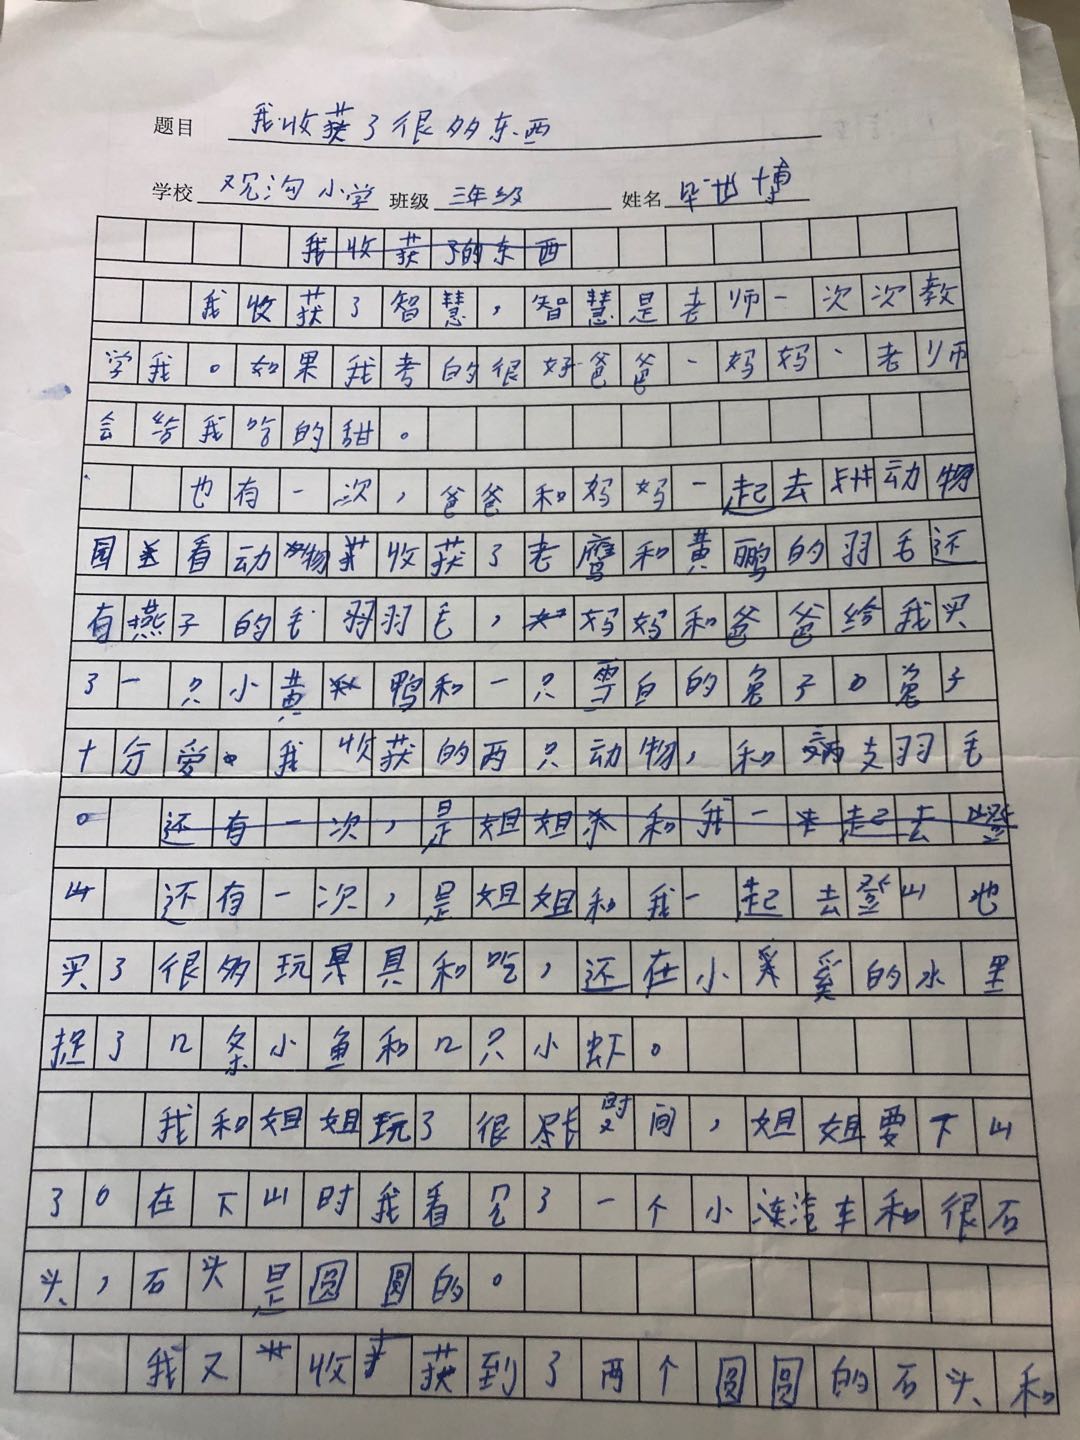 题目 我收获了很多东西
学校 观沟小学 班级 三年级 姓名 毕世博
我收获了的东西
我收获了智慧，智慧是老师一次次教
学我。如果我考的很好爸爸、妈妈、老师
会给我吃的甜。
也有一次，爸爸和妈妈一起去动物
园看动物收获了老鹰和黄鹏的羽毛还
有燕子的毛羽羽毛，妈妈和爸爸给我买
了一只小黄鸭和一只雪白的兔子。兔子
十分爱。我收获的两只动物，和两支羽毛
。还有一次，是姐姐和我一起去登
山 还有一次，是姐姐和我一起去登山也
买了很多玩具具和吃，还在小溪的水里
捉了几条小鱼和几只小虾。
我和姐姐玩了很长时间，姐姐要下山
了。在下山时我看见了一个小汽车和很石
头，石头是圆圆的。
我又收获到了两个圆圆的石头和